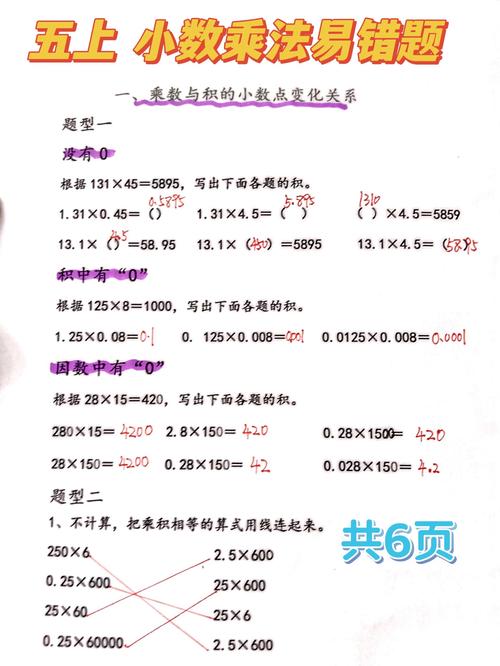 五上 小数乘法易错题
一、乘数与积的小数点变化关系
题型一
没有0
根据131×45=5895，写出下面各题的积。
1.31×0.45=(0.5895) 1.31×4.5=(5.895) (1310)×4.5=5859
13.1×(4.5)=58.95 13.1×(450)=5895 13.1×4.5=(58.95)
积中有“0”
根据125×8=1000，写出下面各题的积。
1.25×0.08=0.1 0. 125×0.008=0.001 0.0125×0.008=0.0001
因数中有“0”
根据28×15=420，写出下面各题的积。
280×15=4200 2.8×150=420 0.28×1500=420
28×150=4200 0.28×150=42 0.028×150=4.2
题型二
1、不计算，把乘积相等的算式用线连起来。
共6页
250×6 2.5×600
0.25×600 25×600
25×60 25×6
0.25×60000 2.5×600